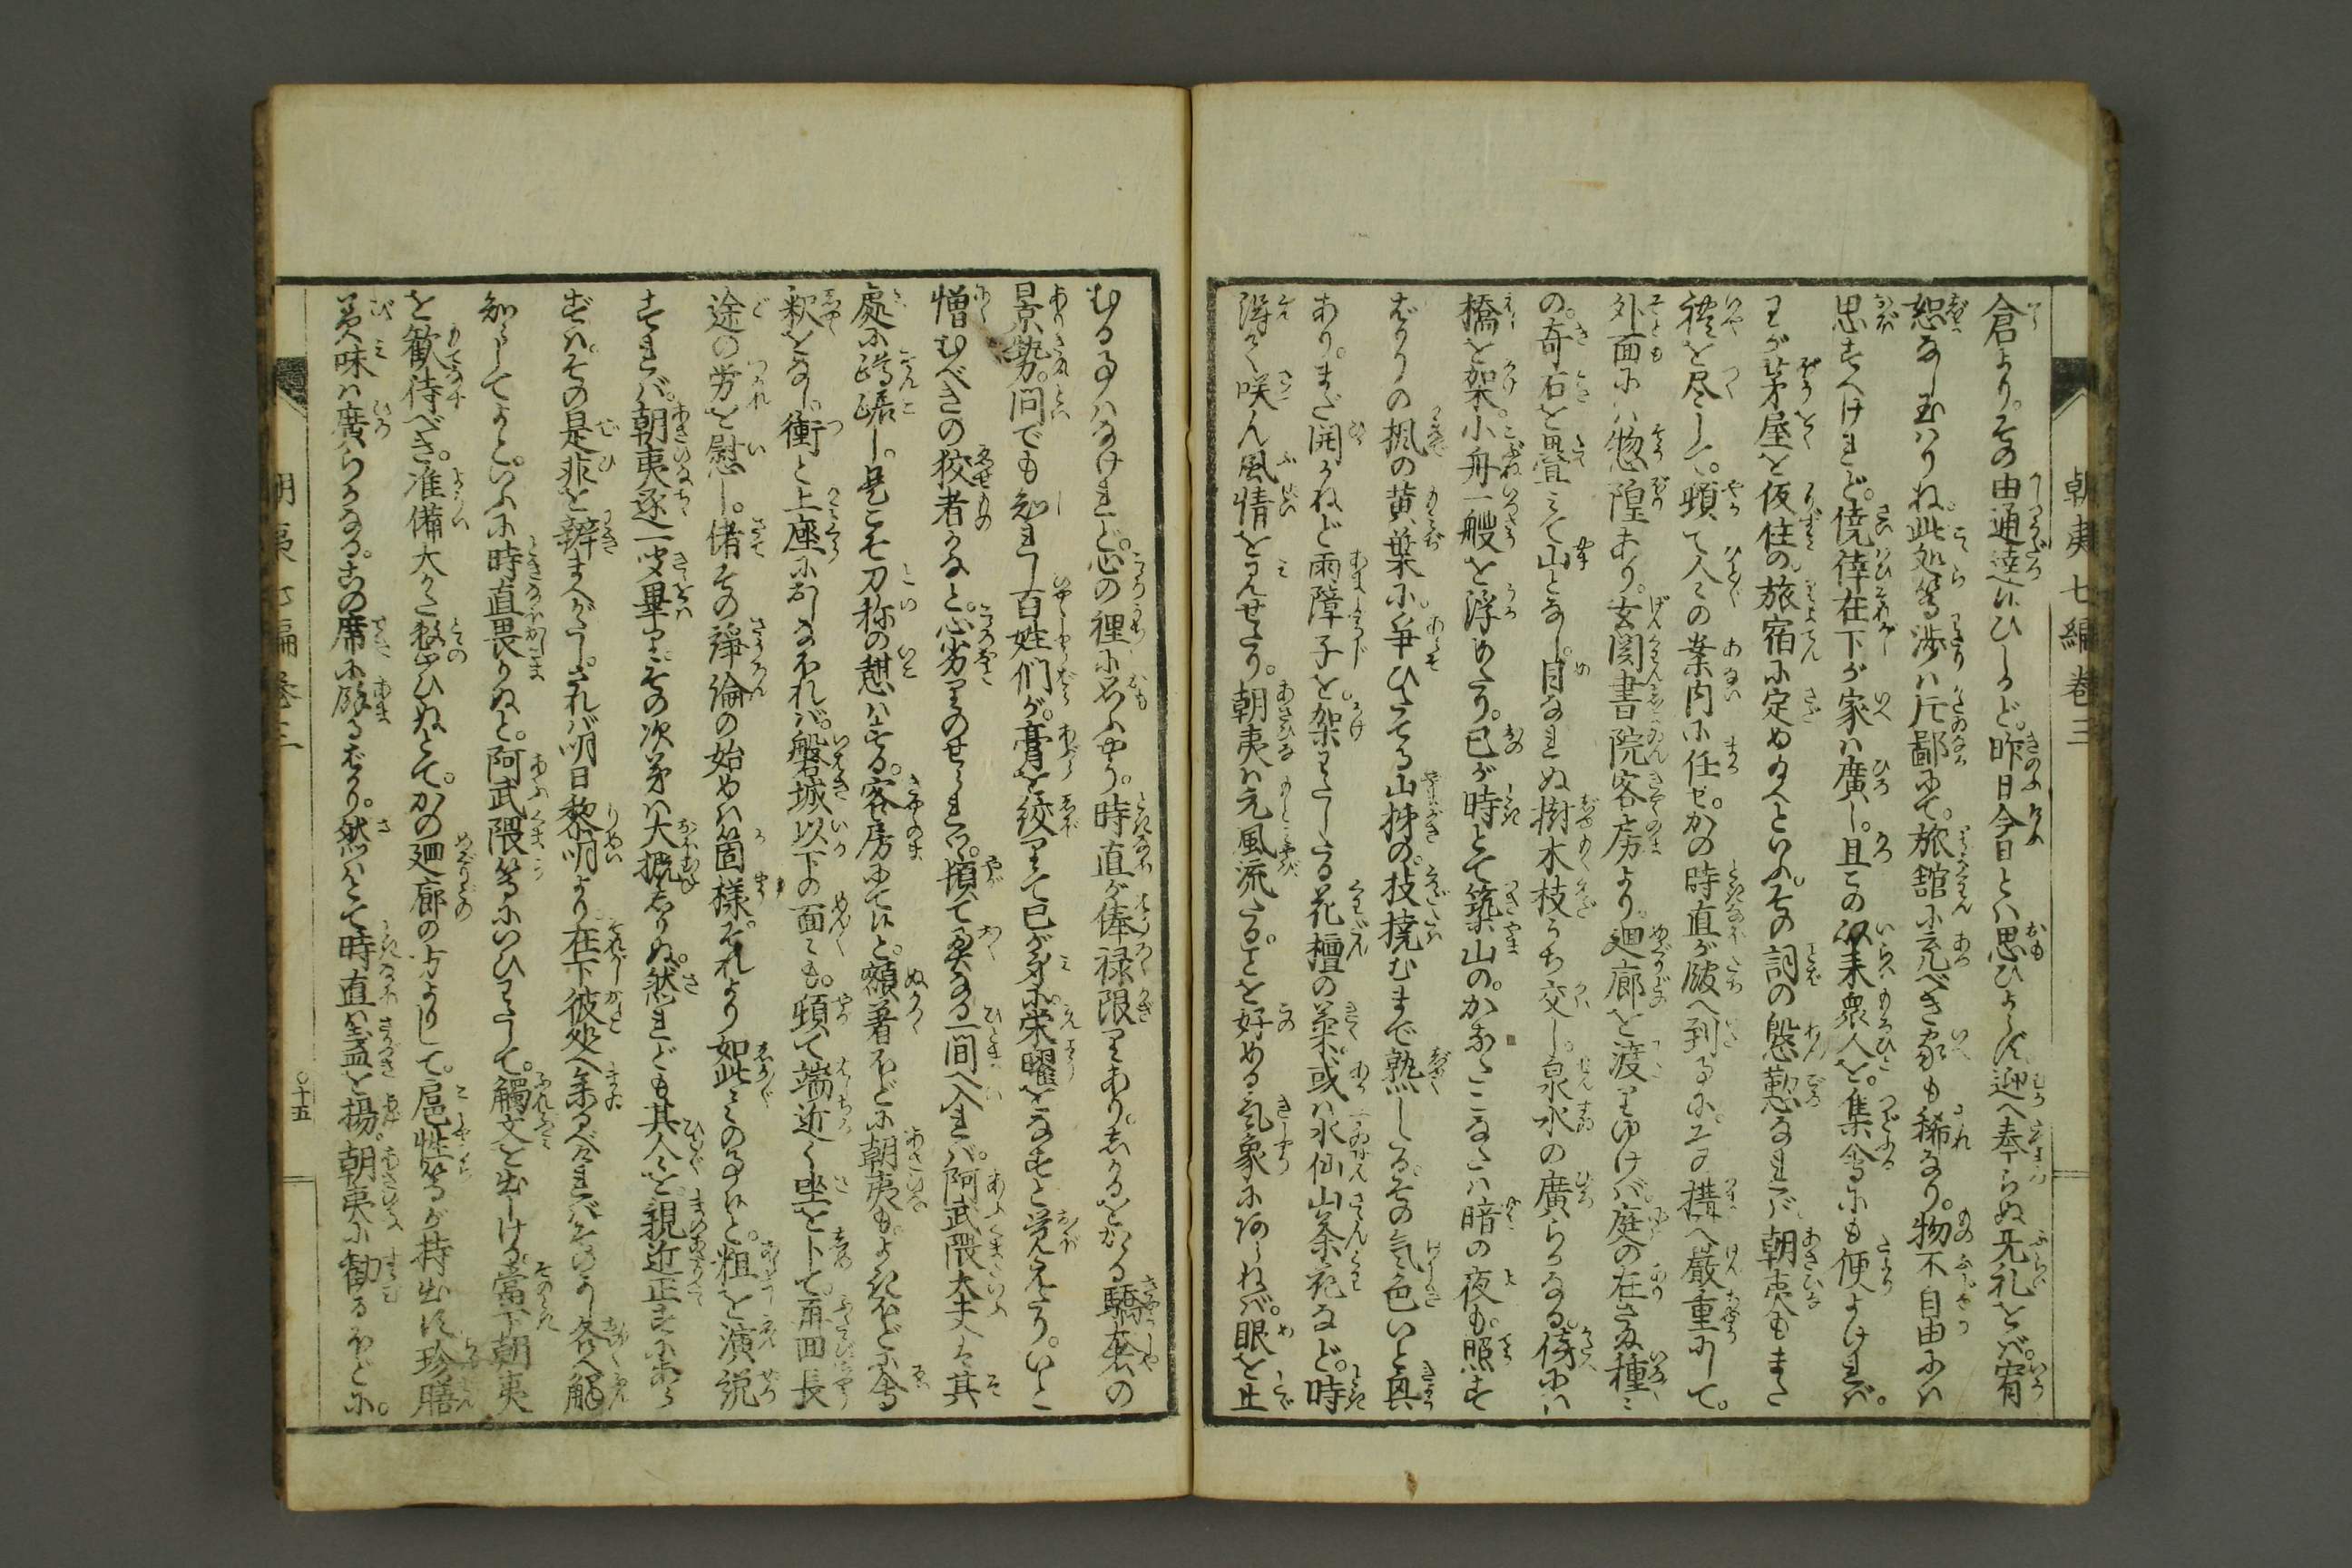 朝夷七編巻三
倉より。その由通達いひしかど。昨日今日とハ思ひよらず。迎へ奉らぬ无礼をバ。宥
恕なし玉ハりね。此処等渉ハ片鄙にて。旅舘に充べき家も稀なり。物不自由にハ
思すべけれど。僥倖在下が家ハ廣し。且この以来衆人を。集會にも便よけれバ。
わが茅屋を仮住の。旅宿に定め給へといふ。その詞の慇懃なれバ朝夷もまた
禮を尽して。頓て人々の案内に任せ。かの時直が舘へ到るに。その構へ嚴重にして。
外面にハ惣隍あり。玄関書院客房より。廻廊を渡りゆけバ庭の在さま種々
の。奇石を疊みて山となし。目なれぬ樹木枝うち交し。泉水の廣らかなる。傍にハ
橋を架。小舟一艘を浮めたり。已が時とて築山の。かなたこなたハ暗の夜も。照す
ばかりの楓の黄葉に争ひたてる山柿の。枝撓むまで熟したる。その気色いと興
あり。まだ開かねど雨障子を。架わたしたる花檀の菊。或ハ水仙山茶花など。時
得て咲ん風情を見せたり。朝夷ハ元風流たる。ことを好める気象にあらねバ。眼を止
むる事ハなけれど。心の裡に思ふやう。時直が俸禄限りあり。しかるをかゝる驕奢の
景勢。問でも知れし百姓們が。膏を絞りて已が身に。栄曜をなすと覚えたり。いと
憎むべきの狡者かなと。心劣りのせられつゝ。頓て奥なる一間へ入れバ。阿武隈太夫ハ其
處に蹲踞し。是こそ刀祢の憩ハせる。客房にて候と。額着ほどに朝夷も。よきほどに會
釈をなし。衝と上座に引なほれバ。磐城以下の面々も。頓て端近く坐をトて。再回長
途の労を慰し。偖その諍論の始めハ箇様。それより如此々々の事候と。粗を演説
すれバ。朝夷逐一聞畢り。その次第ハ大概しりぬ。然れども其人々を。親近正すにあら
ずバ。その是非を辧まへがたし。されバ明日黎明より。在下彼処へ参るべけれバ。そのよし各へ觸
知らしてよと。いふに時直畏りぬと。阿武隈等にいひわたして。觸文を出しける。當下朝夷
を歓待べき。准備大かた整ひぬとて。かの廻廊の方よりして。扈性等が持出る珍膳
美味ハ廣らかなる。この席に餘るばかり。然ハとて時直ハ盃を揚。朝夷に勧るほどに。
朝夷七編巻三
○十五